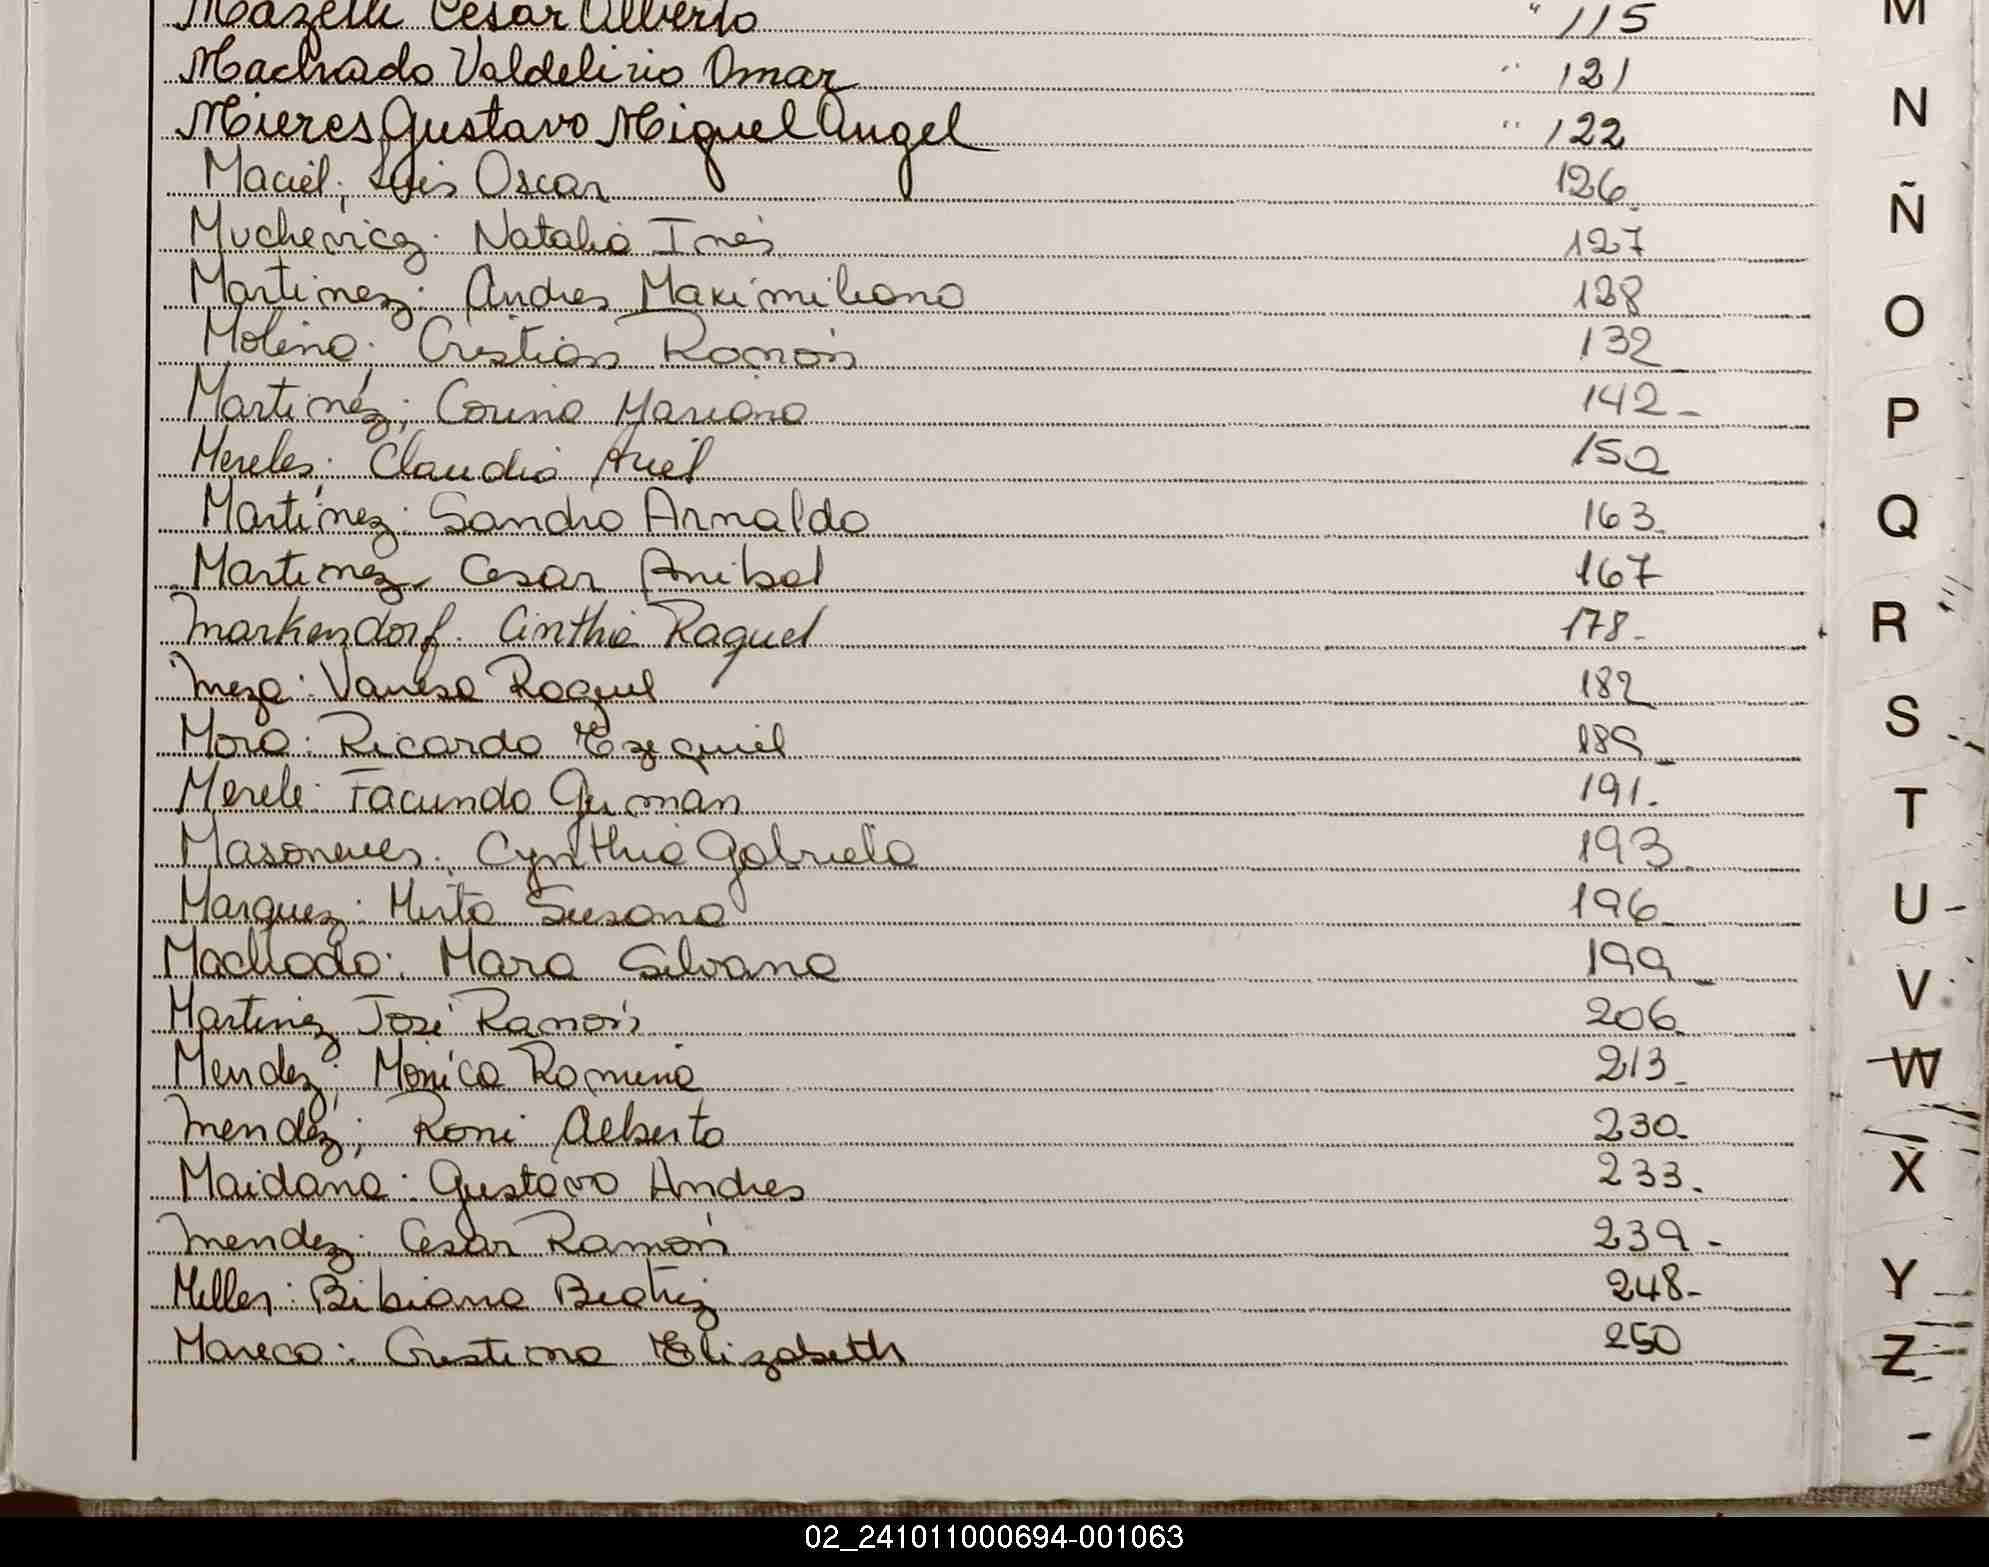 Mazetti Cesar Alberto " 115
Machado Valdelirio Omar " 121
Mieres Gustavo Miguel Angel " 122
Maciel; Luis Oscar 126
Muchevicz. Natalia Inés 127
Martinez. Andres Maximiliano 128
Molina. Cristian Ramón 132
Martinéz; Corina Mariana 142-
Mereles. Claudio Ariel 150
Martínez: Sandro Arnaldo 163
Martinez. Cesar Anibal 167
Markendorf. Cinthia Raquel 178-
Meza: Vanesa Raquel 182
Mora: Ricardo Ezequiel 189
Merele: Facundo German 191.
Masoneves. Cynthia Gabriela 193
Marquez: Mirta Susana 196
Machado: Mara Silvana 199
Martinez José Ramón 206
Mendez; Mónica Romina 213
Mendez; Roni Alberto 230
Maidana: Gustavo Andres 233.
Mendez. Cesar Ramón 239-
Miller: Bibiana Beatriz 248-
Mareco: Cristina Elizabeth 250
M
N
Ñ
O
P
Q
R
S
T
U
V
W
X
Y
Z
02_241011000694-001063